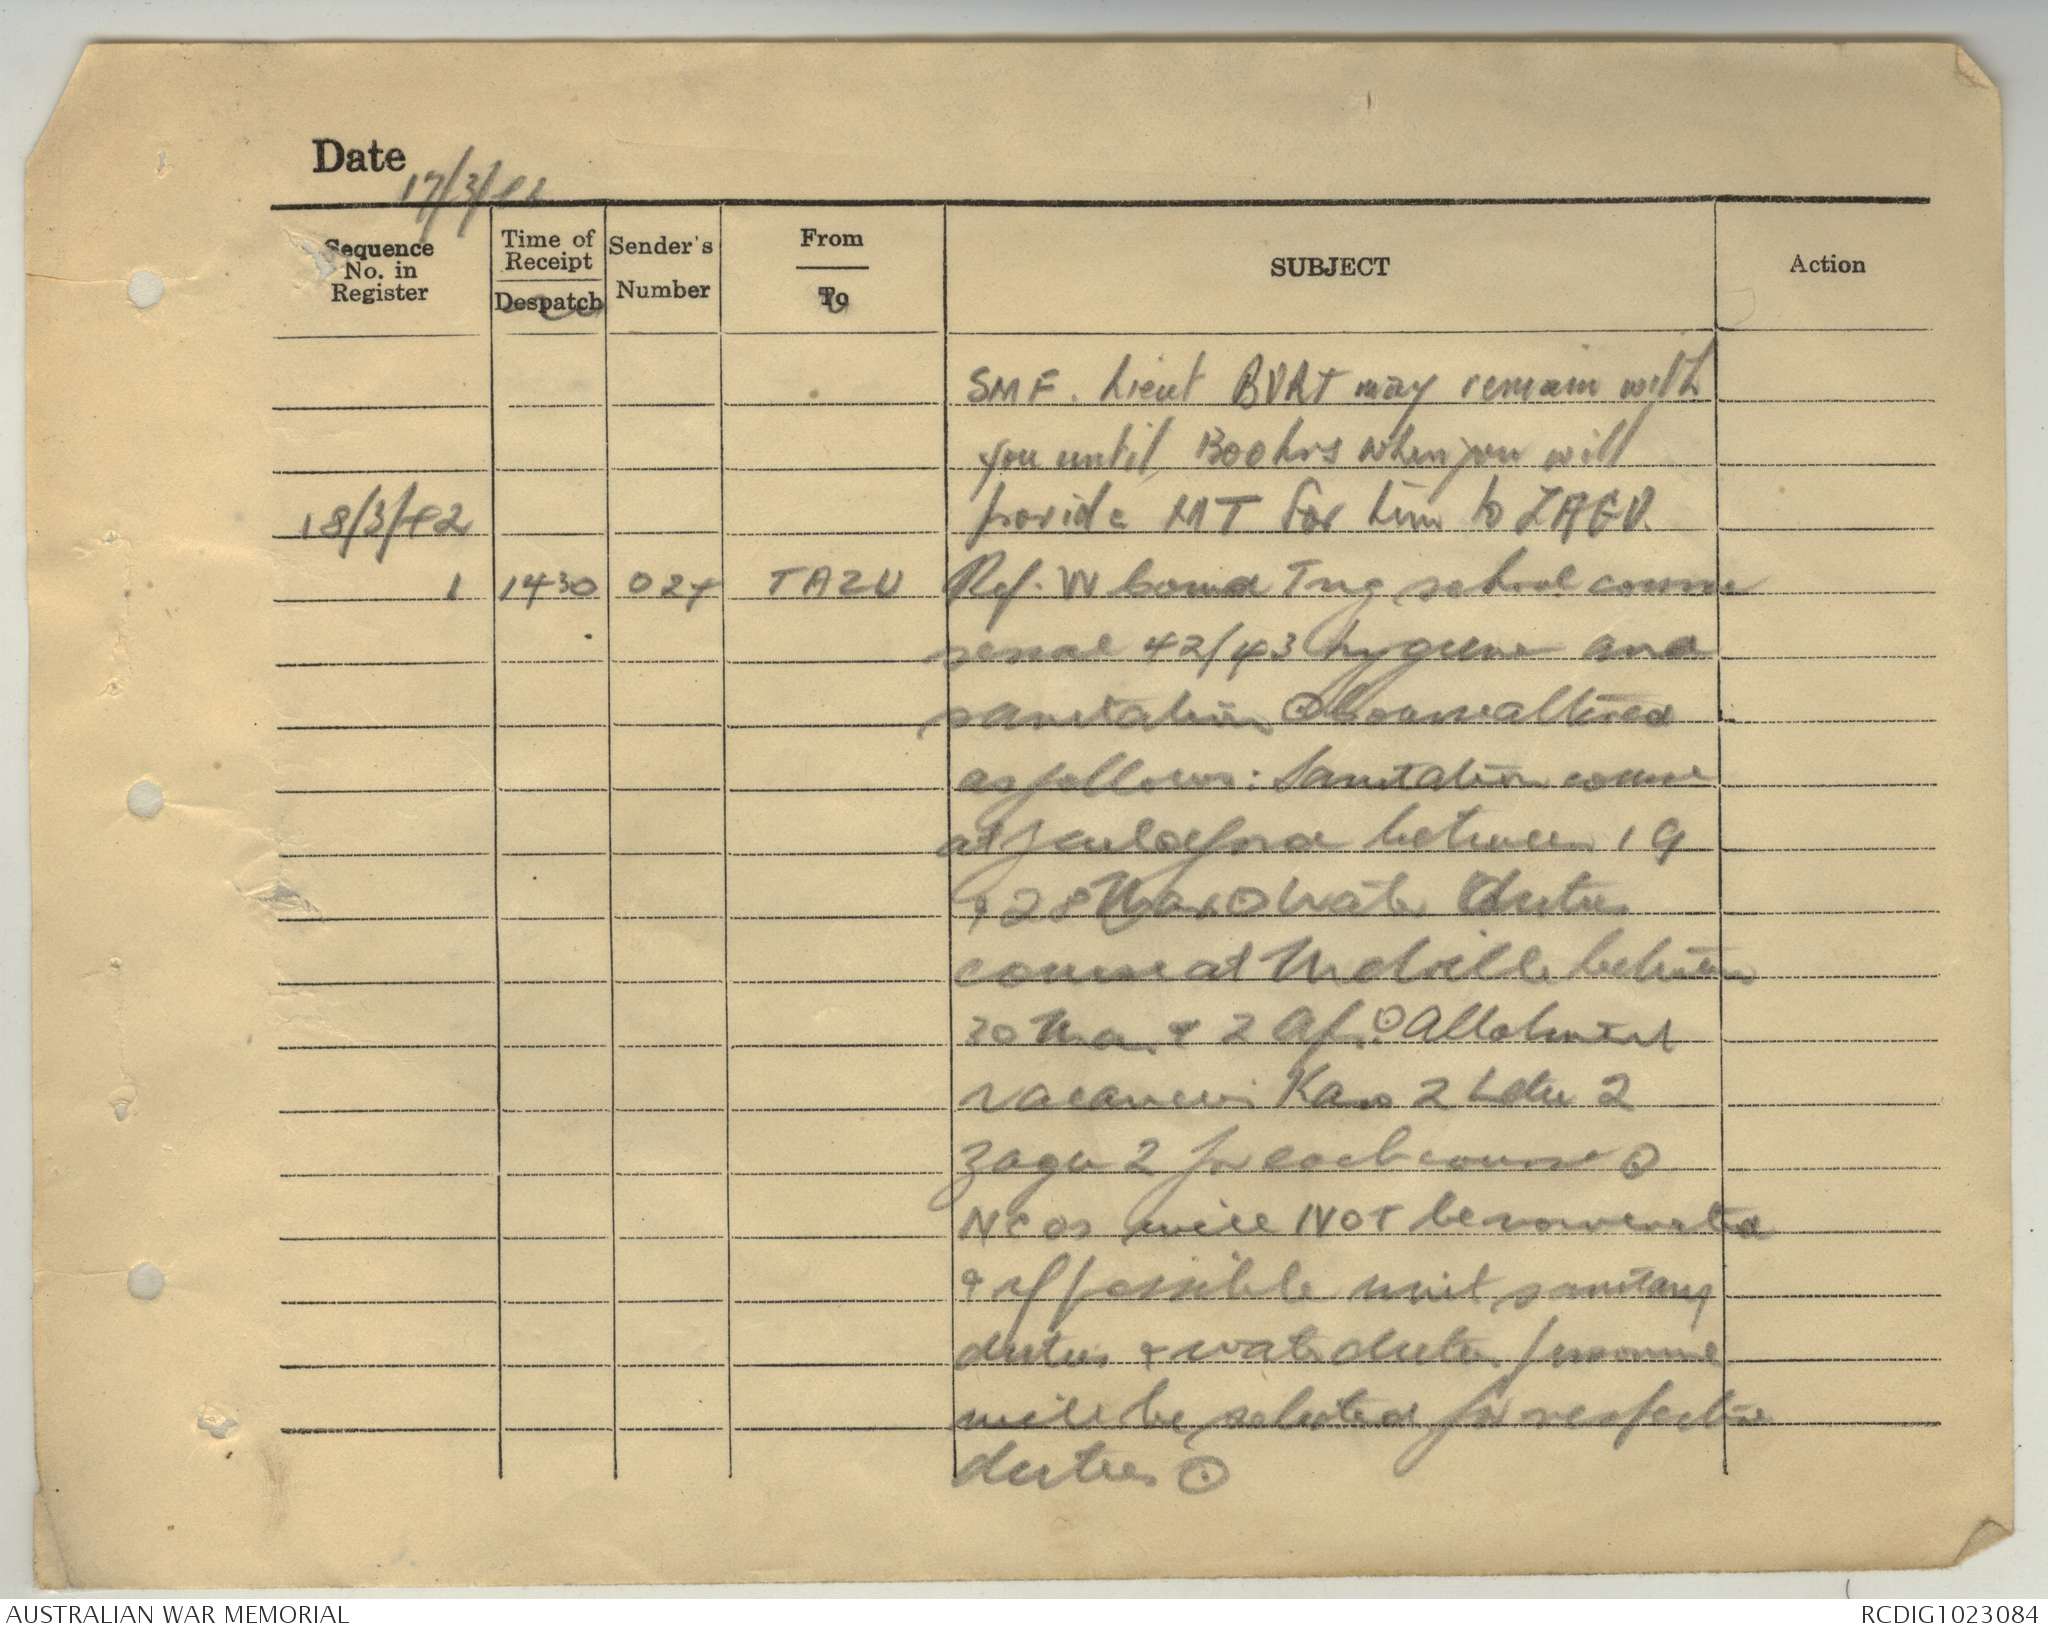 Date 17/3/42
Sequence No. in Register
Time of Receipt
Despatch
Sender's Number
From
To
SUBJECT
Action
SMF. Lieut BURT may remain with
you until 1300 hrs when you will
18/3/42 provide MT for him to ZAGU.
1 1430 024 TAZU Ref. W Comd Tng school course
serial 42/43 hygiene and
sanitation ⊙ Course altered
as follows: Sanitation course
at Guildford between 19
+ 28 Mar ⊙ Water Duties
course at Melville between
30 Mar + 2 Apr ⊙ Allotment
vacancies 2 2
Zagu 2 for each course ⊙
NCOs will NOT be nominated
+ if possible unit sanitary
duties + water duties personnel
will be selected for respective
duties ⊙
AUSTRALIAN WAR MEMORIAL
RCDIG1023084